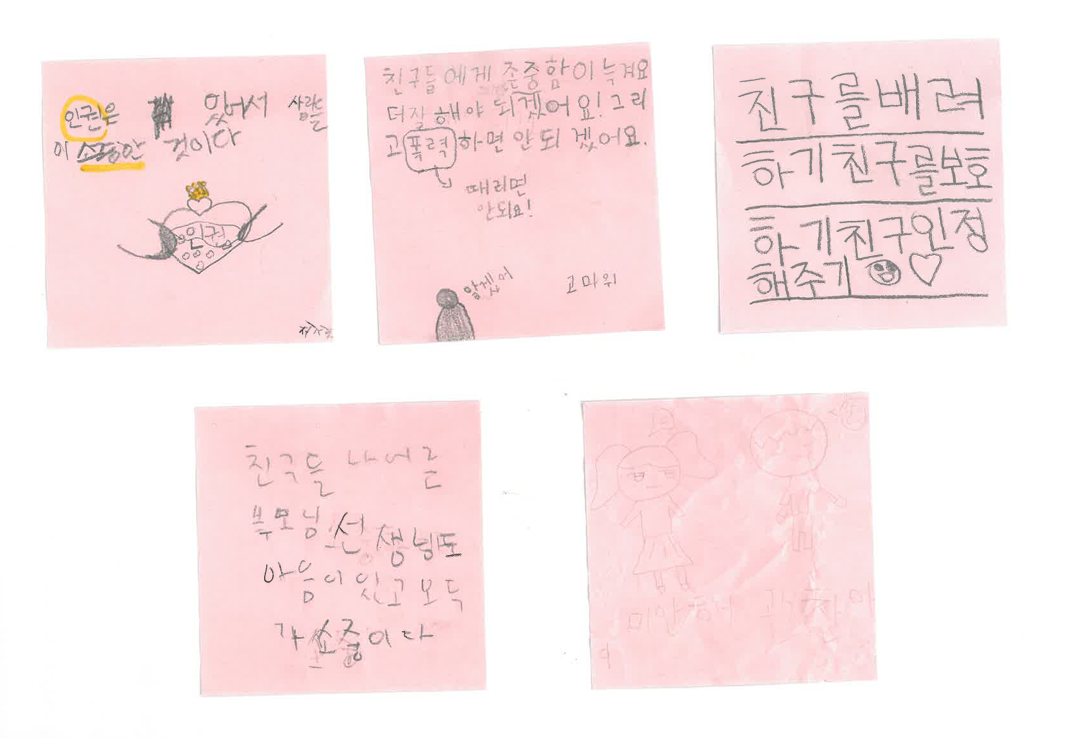 인권은 있어서 사람들
이 소중한 것이다
인권
친구들에게 존중함이 늑겨요
더 잘해야 되겠어요! 그리
고 폭력하면 안되겠어요.
때리면
안되요!
알겠어
고마워
친구를배려
하기친구를보호
하기친구인정
해주기
친구들 나 어른
부모님 선생님도
마음이 있고 모두
가 소중이다
미안해